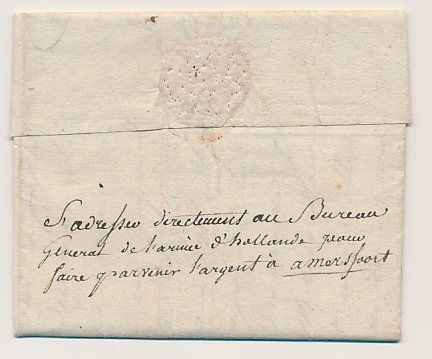 S'adresser directement au Bureau
General de l'armée d'hollande pour
faire parvenir l'argent à amersfoort